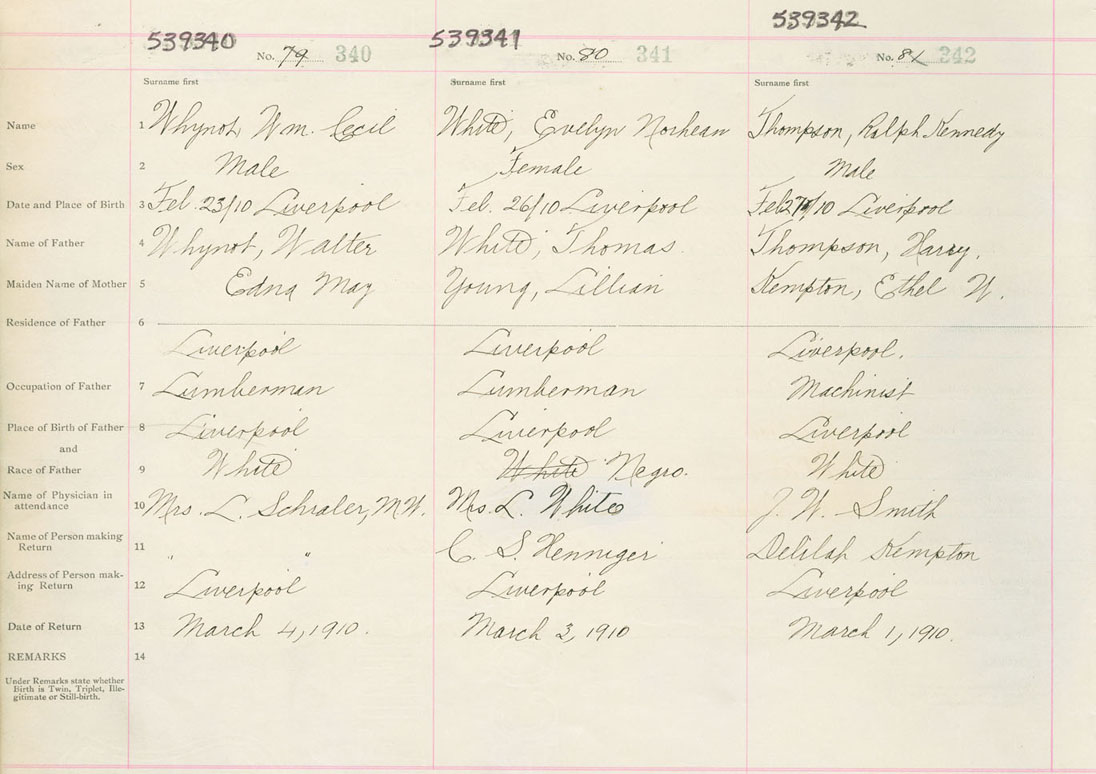 539340 539341 539342
No. 79 340 No. 80 341 No. 81 342
Surname first Surname first Surname first
Name 1 Whynot, Wm. Cecil White, Evelyn Norhean Thompson, Ralph Kennedy
Sex 2 Male Female Male
Date and Place of Birth 3 Feb. 23/10 Liverpool Feb. 26/10 Liverpool Feb 27/10 Liverpool
Name of Father 4 Whynot, Walter White, Thomas. Thompson, Harry.
Maiden Name of Mother 5 Edna May Young, Lillian Kempton, Ethel
Residence of Father 6
Liverpool Liverpool Liverpool.
Occupation of Father 7 Lumberman Lumberman Machinist
Place of Birth of Father 8 Liverpool Liverpool Liverpool
and
Race of Father 9 White White Negro. White
Name of Physician in
attendance 10 Mrs. L. Schraler, M.W. Mrs. L. White J. W. Smith
Name of Person making
Return 11 " " C. S. Henniger Delilah Kempton
Address of Person mak-
ing Return 12 Liverpool Liverpool Liverpool
Date of Return 13 March 4, 1910. March 3, 1910 March 1, 1910.
REMARKS 14
Under Remarks state whether
Birth is Twin, Triplet, Ille-
gitimate or Still-birth.